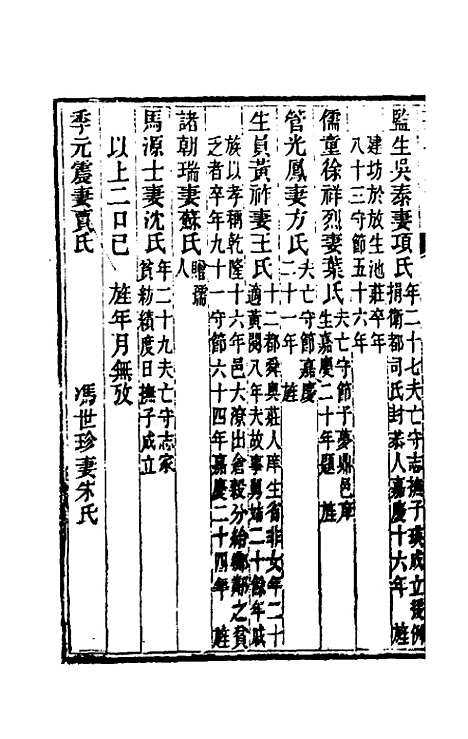 監生吳泰妻項氏年二十七夫亡守志撫子瑛成立後例
捐衛都司氏封恭人嘉慶十六年 旌
建坊於放生池莊卒年
八十三守節五十六年
儒童徐祥烈妻葉氏夫亡守節子夢鼎邑庠
生嘉慶二十年題 旌
管光鳳妻方氏夫亡守節嘉慶
二十一年 旌
生員黃祚妻王氏十二都舜奧莊人庠生省非女年二十
適黃閱八年夫故事舅姑二十餘年戚
族以孝稱乾隆十六年邑大潦出倉穀分給鄉鄰之貧
乏者卒年九十一守節六十四年嘉慶二十四年 旌
諸朝瑞妻蘇氏贈孺
人
馬源士妻沈氏年二十九夫亡守志家
貧紡績度日撫子成立
以上二口已 旌年月無攷
季元震妻賈氏 馮世珍妻朱氏